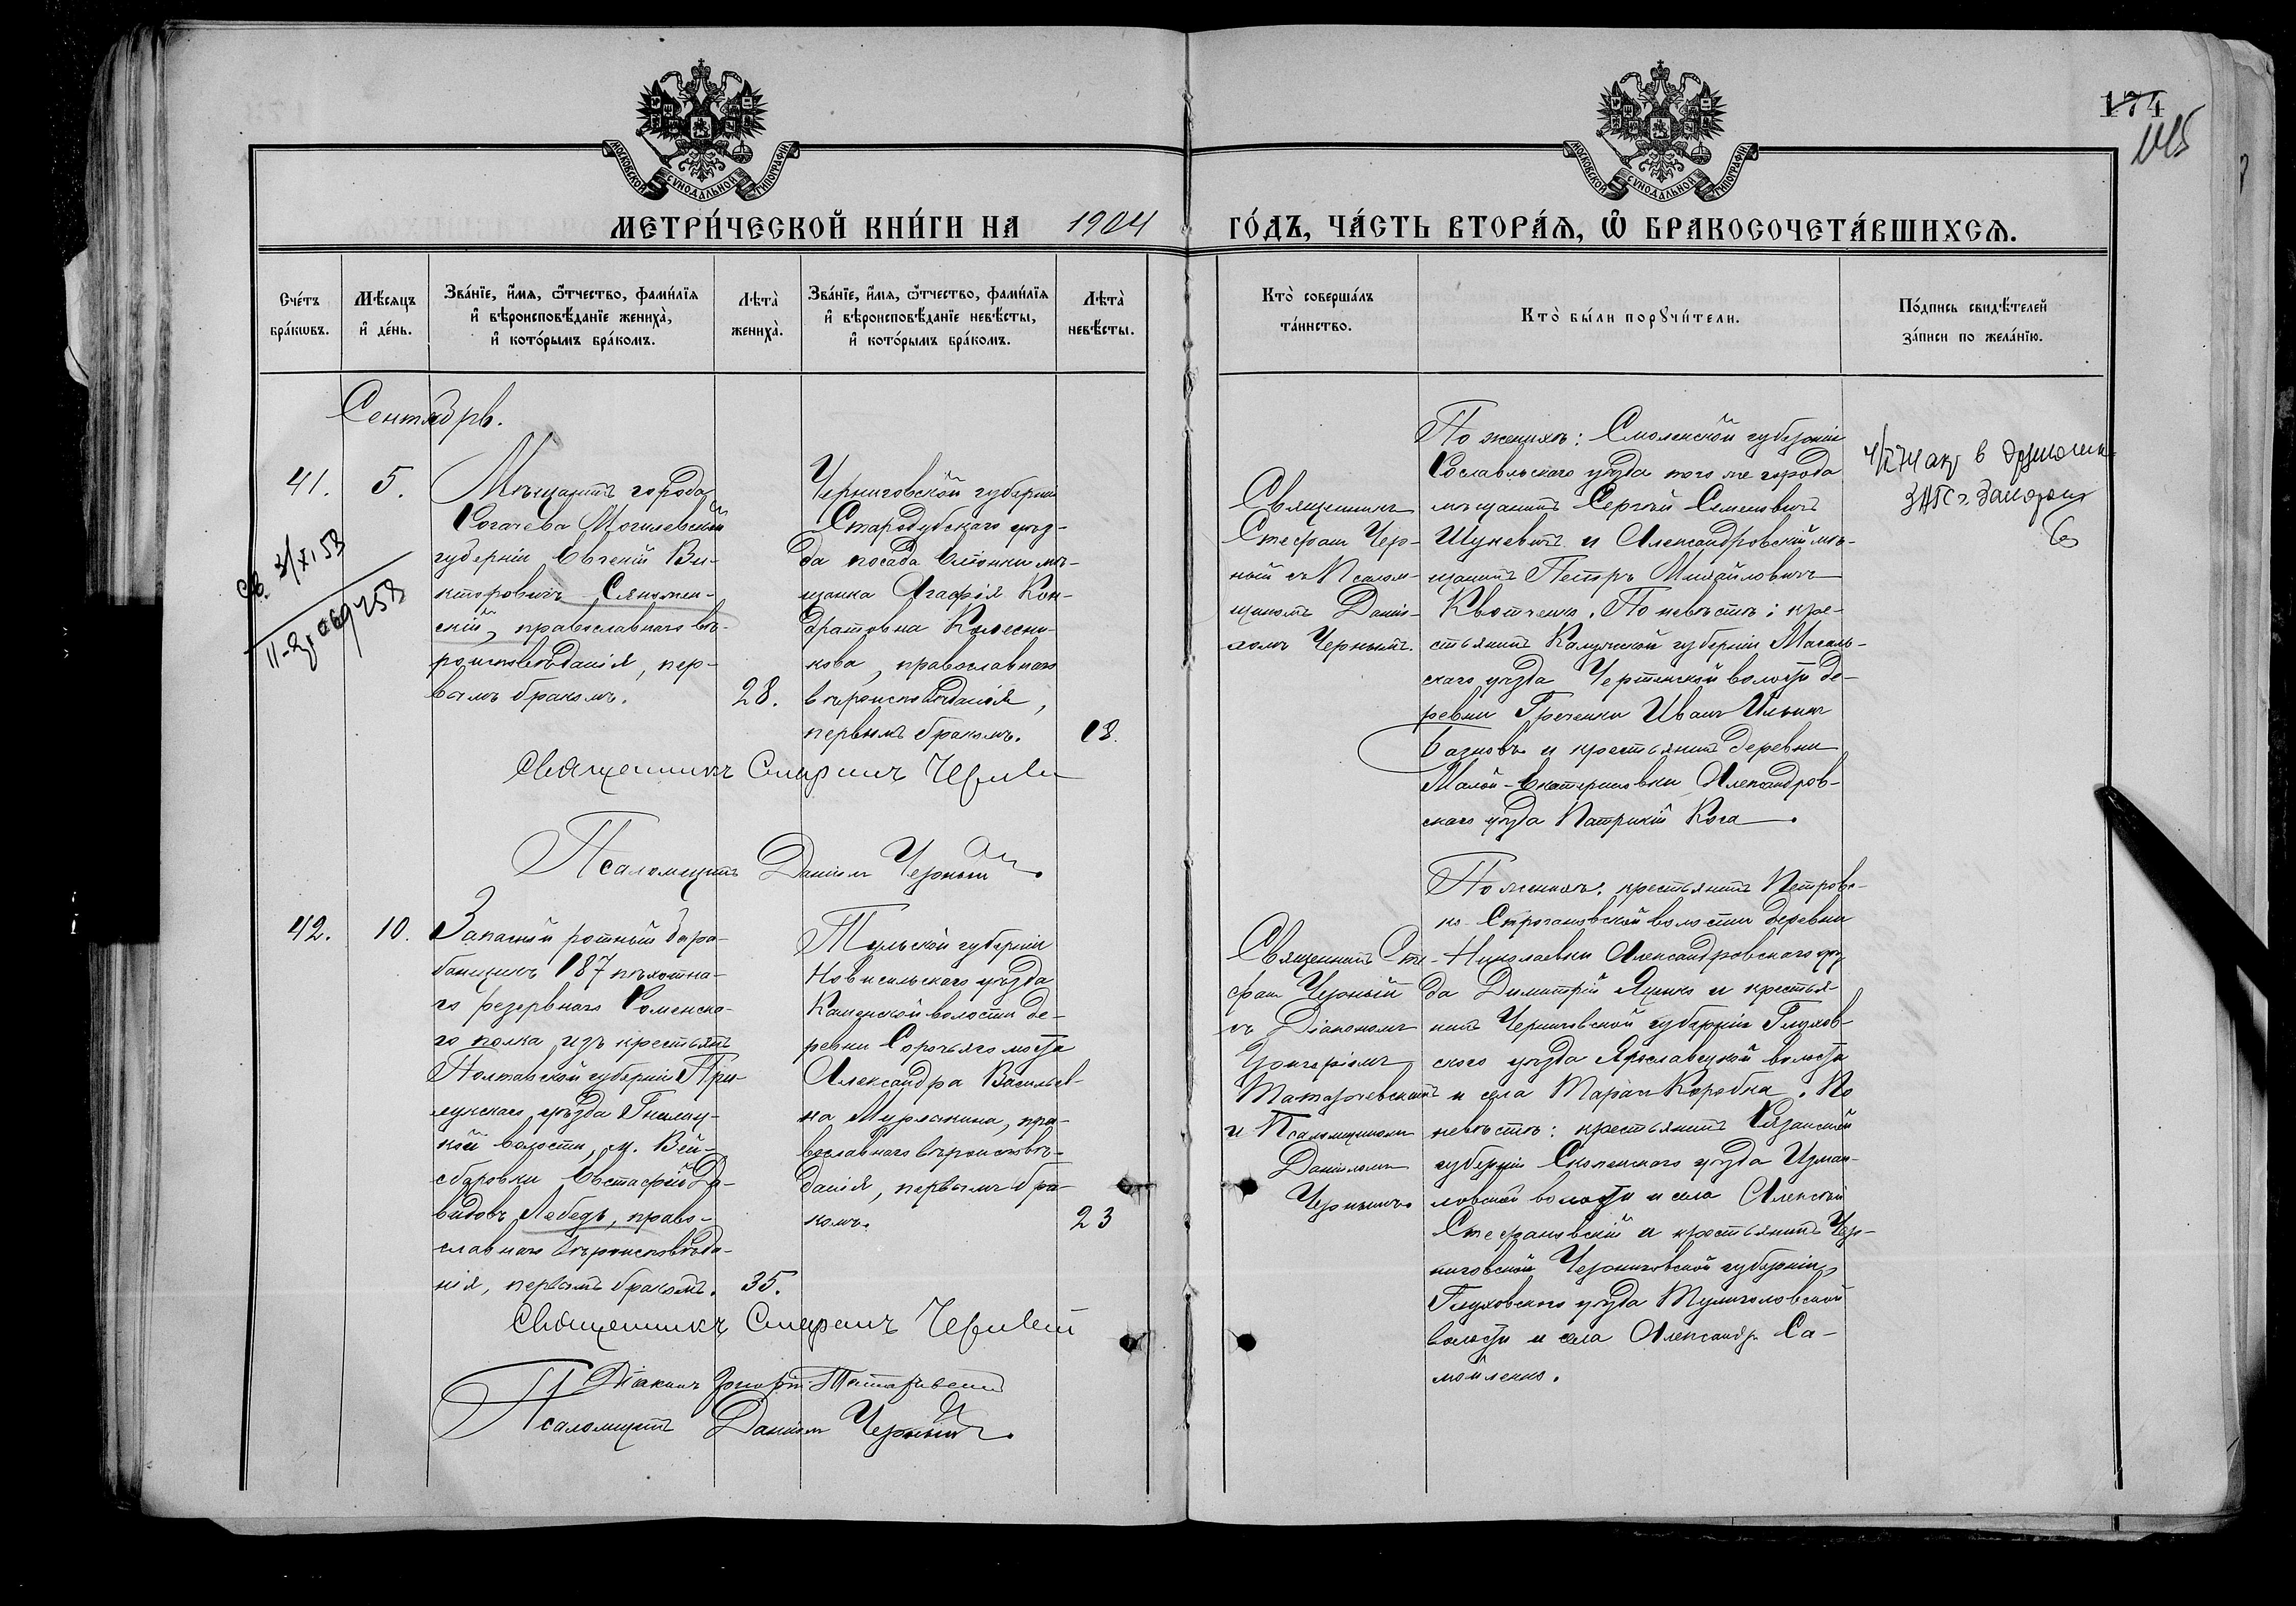 МОСКОВСКОЙ СѴНОДАЛЬНОЙ ТИПОГРАФІИ
МОСКОВСКОЙ СѴНОДАЛЬНОЙ ТИПОГРАФІИ
174
МЕТРИ́ЧЕСКОЙ КНИ́ГИ НА 1904 ГО́ДЪ, ЧА́СТЬ ВТОРА́Ѧ, Ѽ БРАКОСОЧЕТА́ВШИХСѦ.
Сче́тъ бра́кѡвъ.
Мѣ́сѧцъ и҆ де́нь.
Зва́нїе, и҆́мѧ, ѻ҆́тчество, фами́лїѧ
и҆ вѣроисповѣ́данїе жениха̀,
и҆ кото́рымъ бра́комъ.
Лѣта̀ жениха̀.
Зва́нїе, и҆́мѧ, ѻ҆́тчество, фами́лїѧ
и҆ вѣроисповѣ́данїе невѣ́сты,
и҆ кото́рымъ бра́комъ.
Лѣта̀ невѣ́сты.
Кто̀ соверша́лъ та́инство.
Кто̀ бы́ли порꙋчи́тели.
По́дпись свидѣ́телей за́писи по жела́нїю.
Сентябрь.
41.
5.
Мѣщанинъ города
Рогачева Могилевской
губерніи Евгеній Ви-
кторовичъ
скій, православнаго вѣ-
роисповѣданія, пер-
вымъ бракомъ.
28.
Черниговской губерніи
Стародубскаго уѣз-
да посада мѣ-
щанка Агафія Кон-
дратовна Колесни-
кова, православнаго
вѣроисповѣданія,
первымъ бракомъ.
18.
Священникъ
Стефанъ Чер-
ный съ Псалом-
щикомъ Даніи-
ломъ Чернымъ.
По женихѣ: Смоленской губерніи
Рославльскаго уѣзда того же города
мѣщанинъ Сергѣй Семеновичъ
и Александровскій мѣ-
щанинъ Петръ Михайловичъ
Квотченко. По невѣстѣ: кре-
стьянинъ Калужской губерніи Масаль-
скаго уѣзда волости де-
ревни Иванъ Ильинъ
и крестьянинъ деревни
Малой-Екатериновки Александров-
скаго уѣзда Патрикій Коса.
3/XI 53
069458
Священникъ Стефанъ Черный
Псаломщикъ Даніилъ Черный.
42.
10.
Запасный ротный бара-
банщикъ 187 пѣхотна-
го резервнаго Роменска-
го полка изъ крестьянъ
Полтавской губерніи При-
лукскаго уѣзда
кой волости, м.
Евстафій Да-
видовъ Лебедь, право-
славнаго вѣроисповѣда-
нія, первымъ бракомъ.
35.
Тульской губерніи
Новосильскаго уѣзда
Каменской волости де-
ревни Сорочьяго моста
Александра Васильев-
на пра-
вославнаго вѣроисповѣ-
данія, первымъ бра-
комъ.
23
Священникъ Сте-
фанъ Черный
съ Діакономъ
Григоріемъ
и Псаломщикомъ
Даніиломъ
Чернымъ.
По женихѣ: крестьянинъ Петровс-
ко-Строгановской волости деревни
Николаевки Александровскаго уѣз-
да Димитрій Яценко и крестья-
нинъ Черниговской губерніи Глухов-
скаго уѣзда Ярославецкой волости
и села Тарасъ Коробка. По
невѣстѣ: крестьянинъ Рязанской
губерніи Скопинскаго уѣзда
волости и села Алексѣй
Стефановскій и крестьянинъ Чер-
ниговской Черниговской губерніи,
Глуховскаго уѣзда Тулиголовской
волости и села Александръ Са-
мойленко.
Священникъ Стефанъ Черный
Діаконъ
Псаломщикъ Даніилъ Черный.